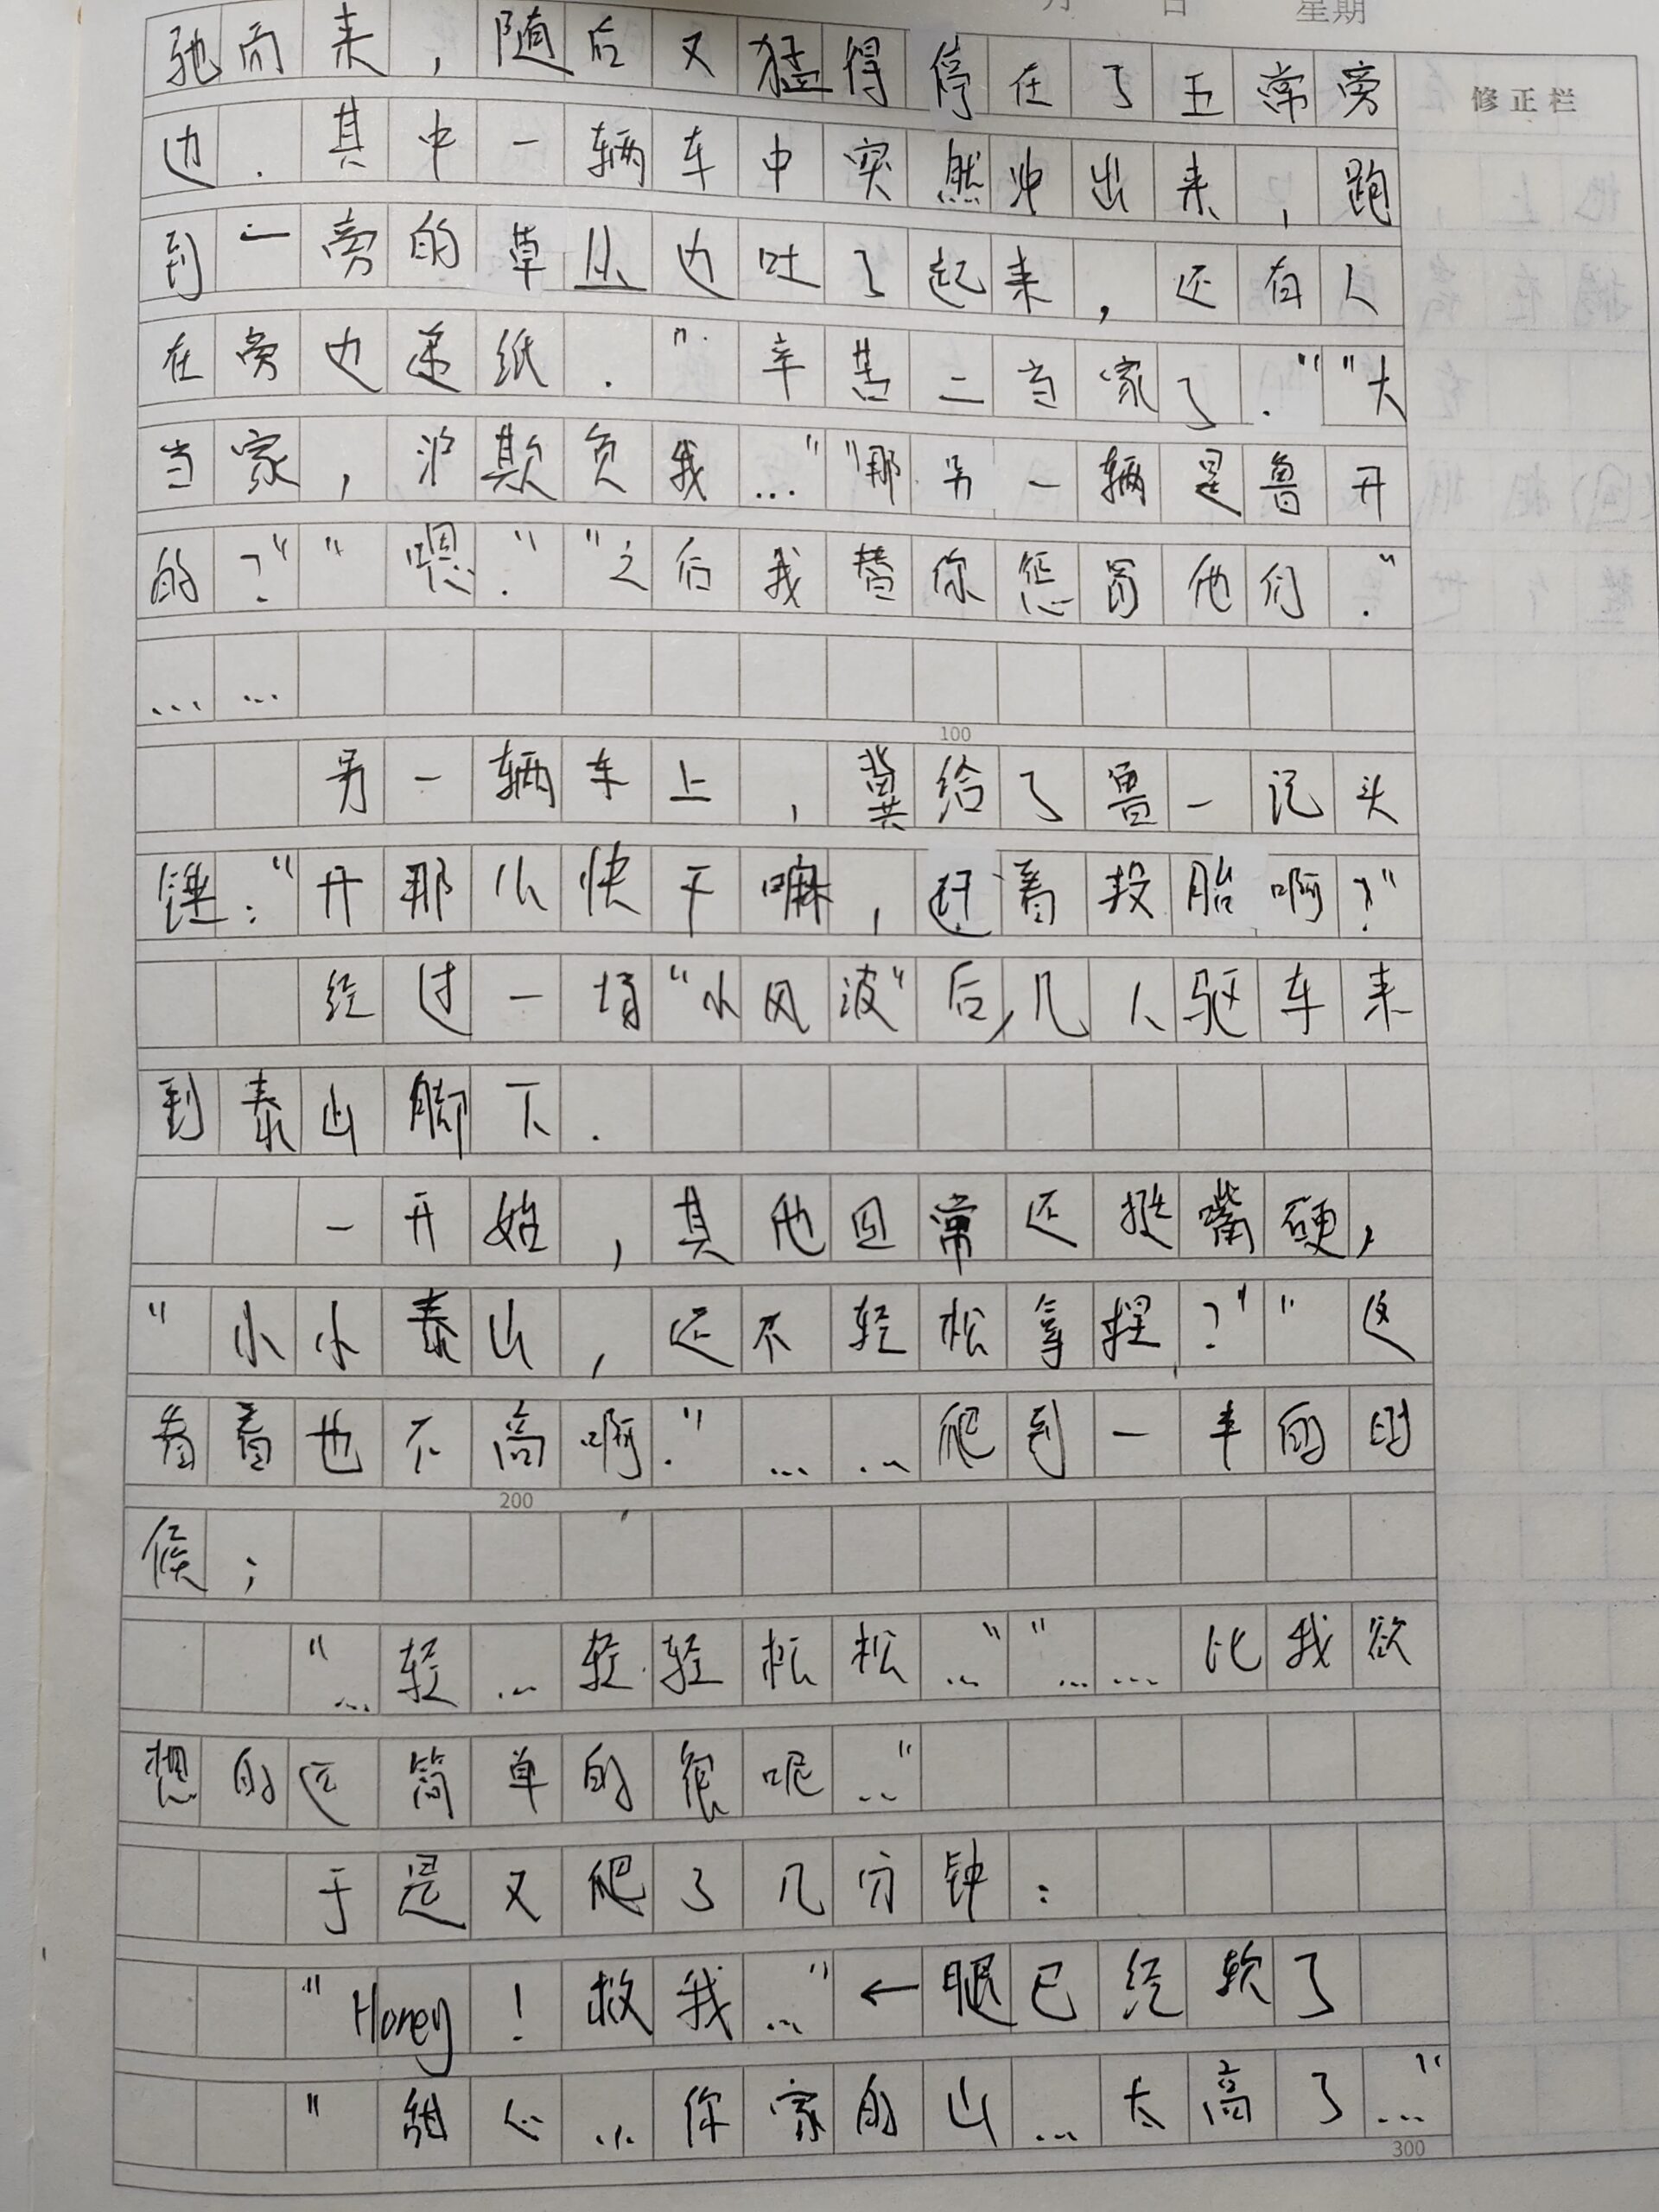 月 日 星期
修正栏
驰而来,随后又猛得停在了五常旁
边.其中一辆车中突然冲出来,跑
到一旁的草丛边吐了起来,还有人
在旁边递纸."辛苦二当家了.""大
当家,沪欺负我...""那另一辆是鲁开
的?""嗯.""之后我替你惩罚他们."
... ...
100
另一辆车上,冀给了鲁一记头
锤:"开那么快干嘛,赶着投胎啊?"
经过一场"小风波"后,几人驱车来
到泰山脚下.
一开始,其他四常还挺嘴硬,
"小小泰山,还不轻松拿捏?""这
看着也不高啊."... ...爬到一半的时
200
候;
"...轻...轻轻松松...""... ...比我欲
想的还简单的很呢..."
于是又爬了几分钟:
"Honey!救我..."←腿已经软了
"甜心...你家的山...太高了..."
300